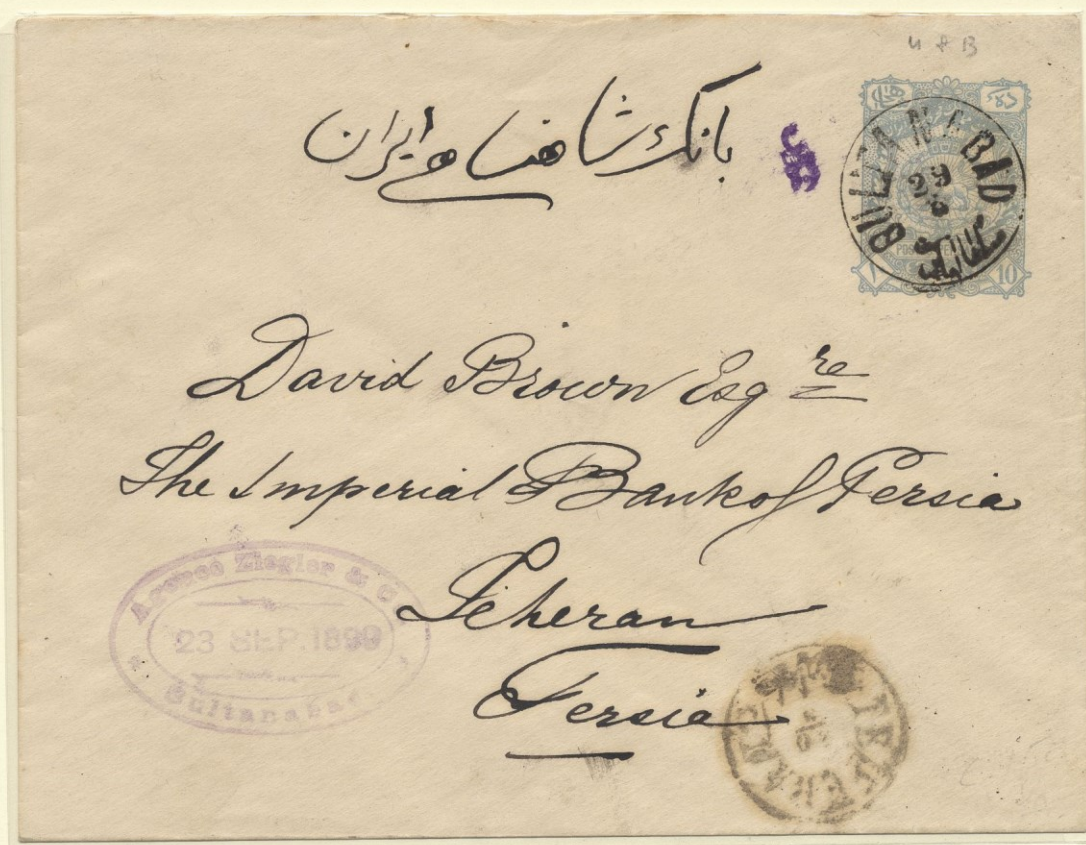 U & B
بانک شاهنشاهی ایران
SULTANABAD
10
David Brown Esqre
The Imperial Bank of Persia
Teheran
Persia
Agence Ziegler & Co
23 SEP. 1899
Sultanabad
TEHERAN